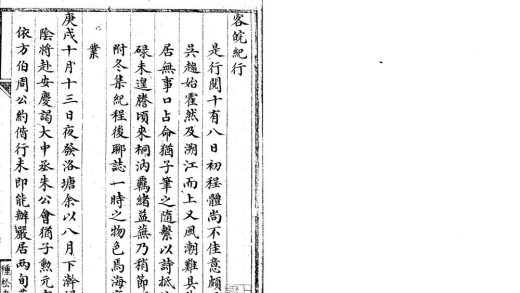 客皖紀行
是行閱十有八日初程體尚不佳意頗
吳趨始霍然及溯江而上又風潮難具
居無事口占命猶子筆之隨繫以詩抵
碌未遑謄頃來桐汭羈緒益蕪乃稍節
附冬集紀程後聊誌一時之物色焉海
業
庚戌十月十三日夜發洛塘余以八月下澣
陰將赴安慶謁大中丞朱公會猶子勲元
依方伯周公約偕行未即能辦嚴居兩旬
種松